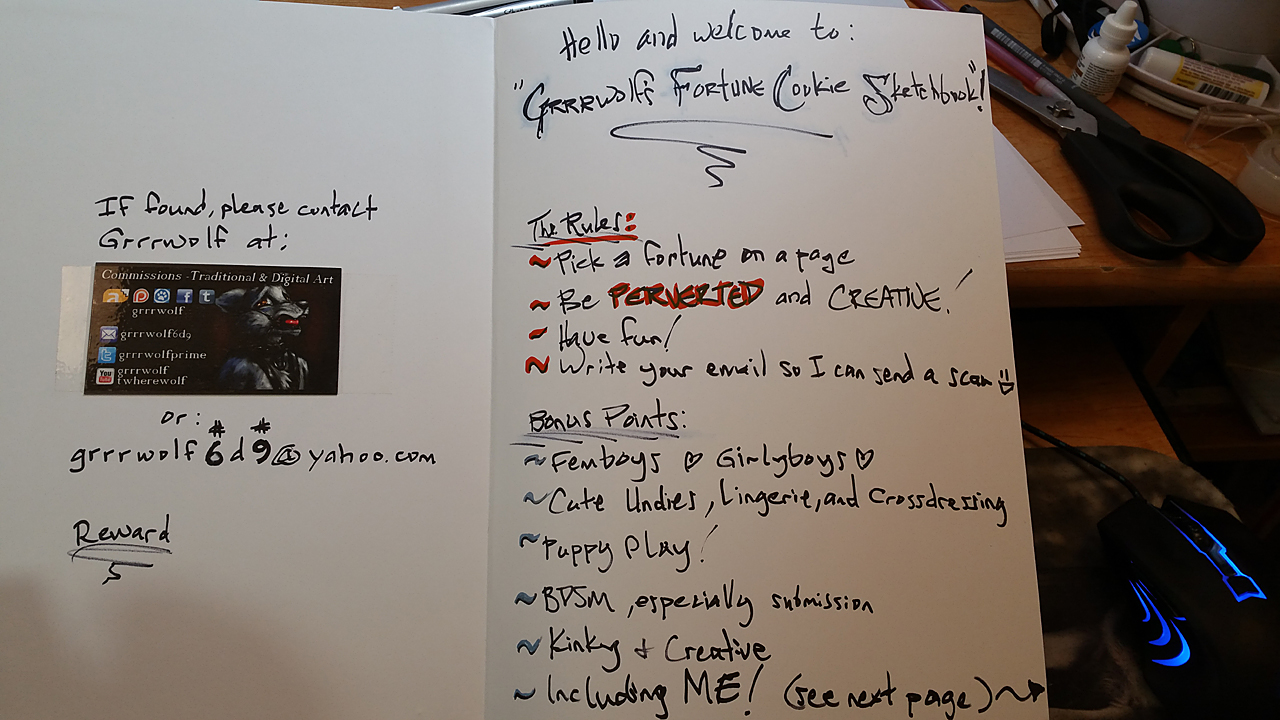 If found, please contact
Grrrwolf at:
Commissions -Traditional & Digital Art
grrrwolf
grrrwolf6d9
grrrwolfprime
You
Tube
grrrwolf
twherewolf
or:
# #
grrrwolf6d9@yahoo.com
Reward
Hello and welcome to:
"Grrrwolf's Fortune Cookie Sketchbook"!
The Rules:
~Pick a fortune on a page
~Be PERVERTED and CREATIVE!
~Have fun!
~Write your email so I can send a scan
Bonus Points:
~Femboys ♡ Girlyboys ♡
~Cute Undies, Lingerie, and Crossdressing
~Puppy Play!
~BDSM, especially submission
~Kinky + Creative
~Including ME! (see next page)